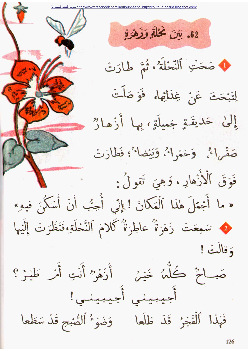 62. بَيْنَ نَحْلَةٍ وَزَهْرَةٍ
1 صَحَتِ النَّحْلَةُ، ثُمَّ طارَتْ
لِتَبْحَثَ عَنْ غِذائِها، فَوَصَلَتْ
إِلَى حَديقَةٍ جَميلَةٍ، بِها أَزْهارٌ
صَفْراءُ وَحَمْراءُ وَبَيْضاءُ، فَطارَتْ
فَوْقَ الْأَزْهارِ وَهِيَ تَقولُ:
« ما أَجْمَلَ هٰذا الْمَكانَ! إِنِّي أُحِبُّ أَنْ أَسْكُنَ فيهِ»
2 سَمِعَتْ زَهْرَةٌ عاطِرَةٌ كَلامَ النَّحْلَةِ، فَنَظَرَتْ إِلَيْها
وَقالَتْ:
صَباحٌ كُلُّهُ خَيْرُ أَزَهْرٌ أَنْتِ أَمْ طَيْرُ؟
أَجيبيني أَجيبيني!
فَهٰذا الْفَجْرُ قَدْ طَلَعا وَضَوْءُ الصُّبْحِ قَدْ سَطَعا
126